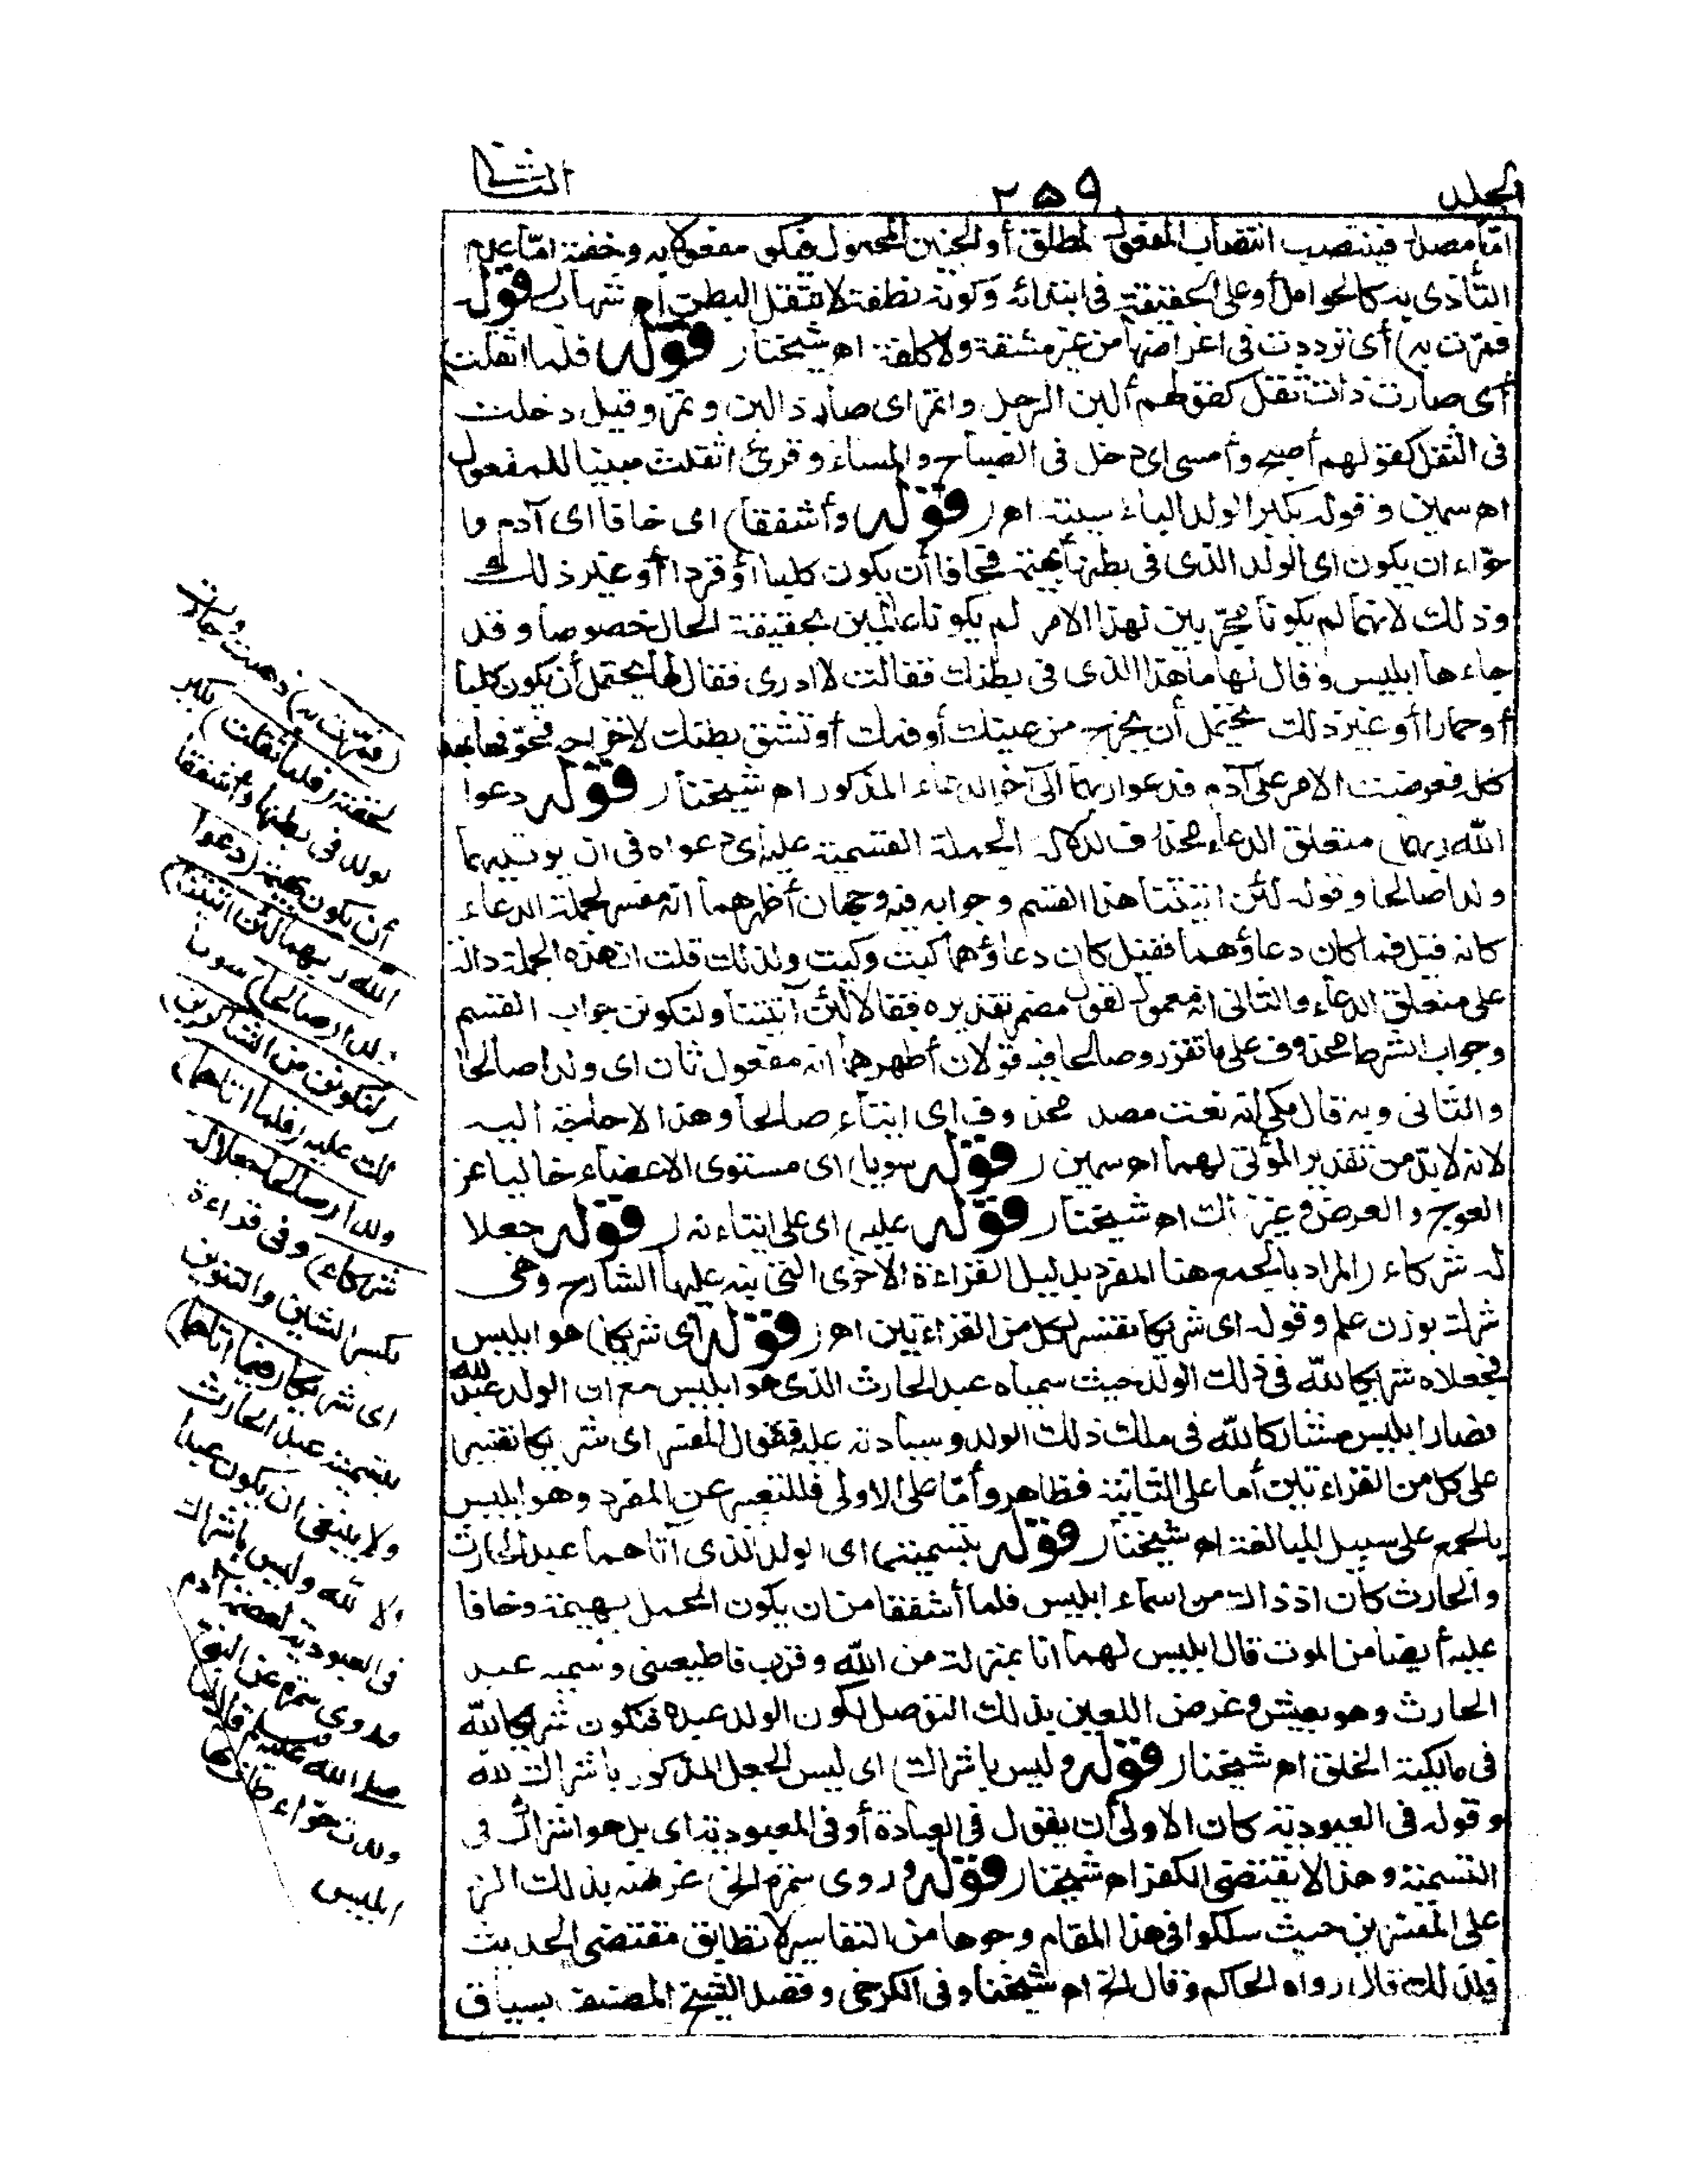 المجلد
٢٥٩
الثانى
امّا مصدر فينتصب انتصاب المفعول المطلق أو الجنين المحمول فيكون مفعولا به وخفته امّا عدم
التأذى به كالحوامل أو على الحقيقة فى ابتدائه وكونه نطفة لا تثقل البطن اه شهاب (قوله
فمرّت به) أى ترددت فى اغراضها من غير مشقة ولا كلفة اه شيخنا (قوله فلما اثقلت)
أى صارت ذات ثقل كقولهم ألبن الرجل واتمر اى صار ذا لبن وتمر وقيل دخلت
فى الثقل كقولهم أصبح وأمسى اى دخل فى الصباح والمساء وقرئ اثقلت مبنيا للمفعول
اه سمين وقوله بكبر الولد الباء سببية اه (قوله وأشفقا) اى خافا اى آدم و
حوّاء ان يكون اى الولد الذى فى بطنها بهيمة فخافا أن يكون كلبا أو قردا أو غير ذلك
وذلك لانهما لم يكونا مجرّبين لهذا الامر لم يكونا عالمين بحقيقة الحال خصوصا وقد
جاءها ابليس وقال لها ما هذا الذى فى بطنك فقالت لا ادرى فقال لها يحتمل أن يكون كلبا
أو حمارا أو غير ذلك يحتمل أن يخرج من عينك أو فمك أو تنشق بطنك لاخراجه فخوفها بهذا
كله فعرضت الامر على آدم فدعوا ربهما الى آخر الدعاء المذكور اه شيخنا (قوله دعوا
الله ربهما) متعلق الدعاء محذوف لدلالة الجملة القسمية عليه أى دعواه فى ان يؤتيهما
ولدا صالحا وقوله لئن اتيتنا هذا القسم وجوابه فيه وجهان أظهرهما انه مفسر لجملة الدعاء
كانه قيل فما كان دعاؤهما فقيل كان دعاؤهما كيت وكيت ولذلك قلت ان هذه الجملة دالة
على متعلق الدعاء والثانى انه معمول لقول مضمر تقديره فقالا لئن آتيتنا ولنكونن جواب القسم
وجواب الشرط محذوف على ما تقرر وصالحا فيه قولان أظهرهما انه مفعول ثان اى ولدا صالحا
والثانى وبه قال مكى انه نعت مصدر محذوف اى ايتاء صالحا وهذا لا حاجة اليه
لانه لا بدّ من تقدير المؤتى لهما اه سمين (قوله سويا) اى مستوى الاعضاء خاليا عن
العوج والعرض وغير ذلك اه شيخنا (قوله عليه) اى على ايتاءنه (قوله جعلا
له شركاء) المراد بالجمع هنا المفرد بدليل القراءة الأخرى التى نبه عليها الشارح وهى
شرك بوزن علم وقوله اى شريكا تفسير لكل من القراءتين اه (قوله أى شريكا) هو ابليس
فجعلاه شريكا لله فى ذلك الولد حيث سمياه عبد الحارث الذى هو ابليس مع ان الولد عبد الله
فصار ابليس مشاركا لله فى ملك ذلك الولد وسيادته عليه فقول المفسر اى شريكا تفسير
على كل من القراءتين أما على الثانية فظاهر وأمّا على الاولى فللتعبير عن المفرد وهو ابليس
بالجمع على سبيل المبالغة اه شيخنا (قوله بتسميته) اى الولد الذى آتاهما عبد الحارث
والحارث كان اذ ذاك من اسماء ابليس فلما أشفقا من ان يكون الحمل بهيمة وخافا
عليه أيضا من الموت قال ابليس لهما انا بمنزلة من الله وقرب فاطيعينى وسميه عبد
الحارث وهو يعيش وغرض اللعين بذلك التوصل لكون الولد عبده فتكون شريكا لله
فى مالكية الخلق اه شيخنا (قوله وليس باشراك) اى ليس الجعل المذكور باشراك لله
وقوله فى العبودية كان الاولى أن يقول فى العبادة أو فى المعبودية اى بل هو اشراك فى
التسمية وهذا لا يقتضى الكفر اه شيخنا (قوله وروى سمرة الخ) غرضه بذلك الرد
على المفسرين حيث سلكوا فى هذا المقام وجوها من التفاسير لا تطابق مقتضى الحديث
فلذلك قال رواه الحاكم وقال الخ اه شيخنا وفى الكرخى وفصل الشيخ المصنف بسياق
(فمرّت به) ذهبت وجاءت
لخفته (فلما أثقلت) بكبر
الولد فى بطنها وأشفقا
أن يكون بهيمة (دعوا
الله ربهما لئن اتيتنا)
ولدا (صالحا) سويا
(لنكونن من الشاكرين)
لك عليه (فلما اتاهما)
ولدا (صالحا جعلا له
شركاء) وفى قراءة
بكسر الشين والتنوين
اى شريكا (فيما اتاهما)
بتسميته عبد الحارث
ولا ينبغى ان يكون عبدا
الا لله وليس باشراك
فى العبودية لعصمة آدم
وروى سمرة عن النبى
صلى الله عليه وسلم قال لما
ولدت حوّاء طاف بها
ابليس